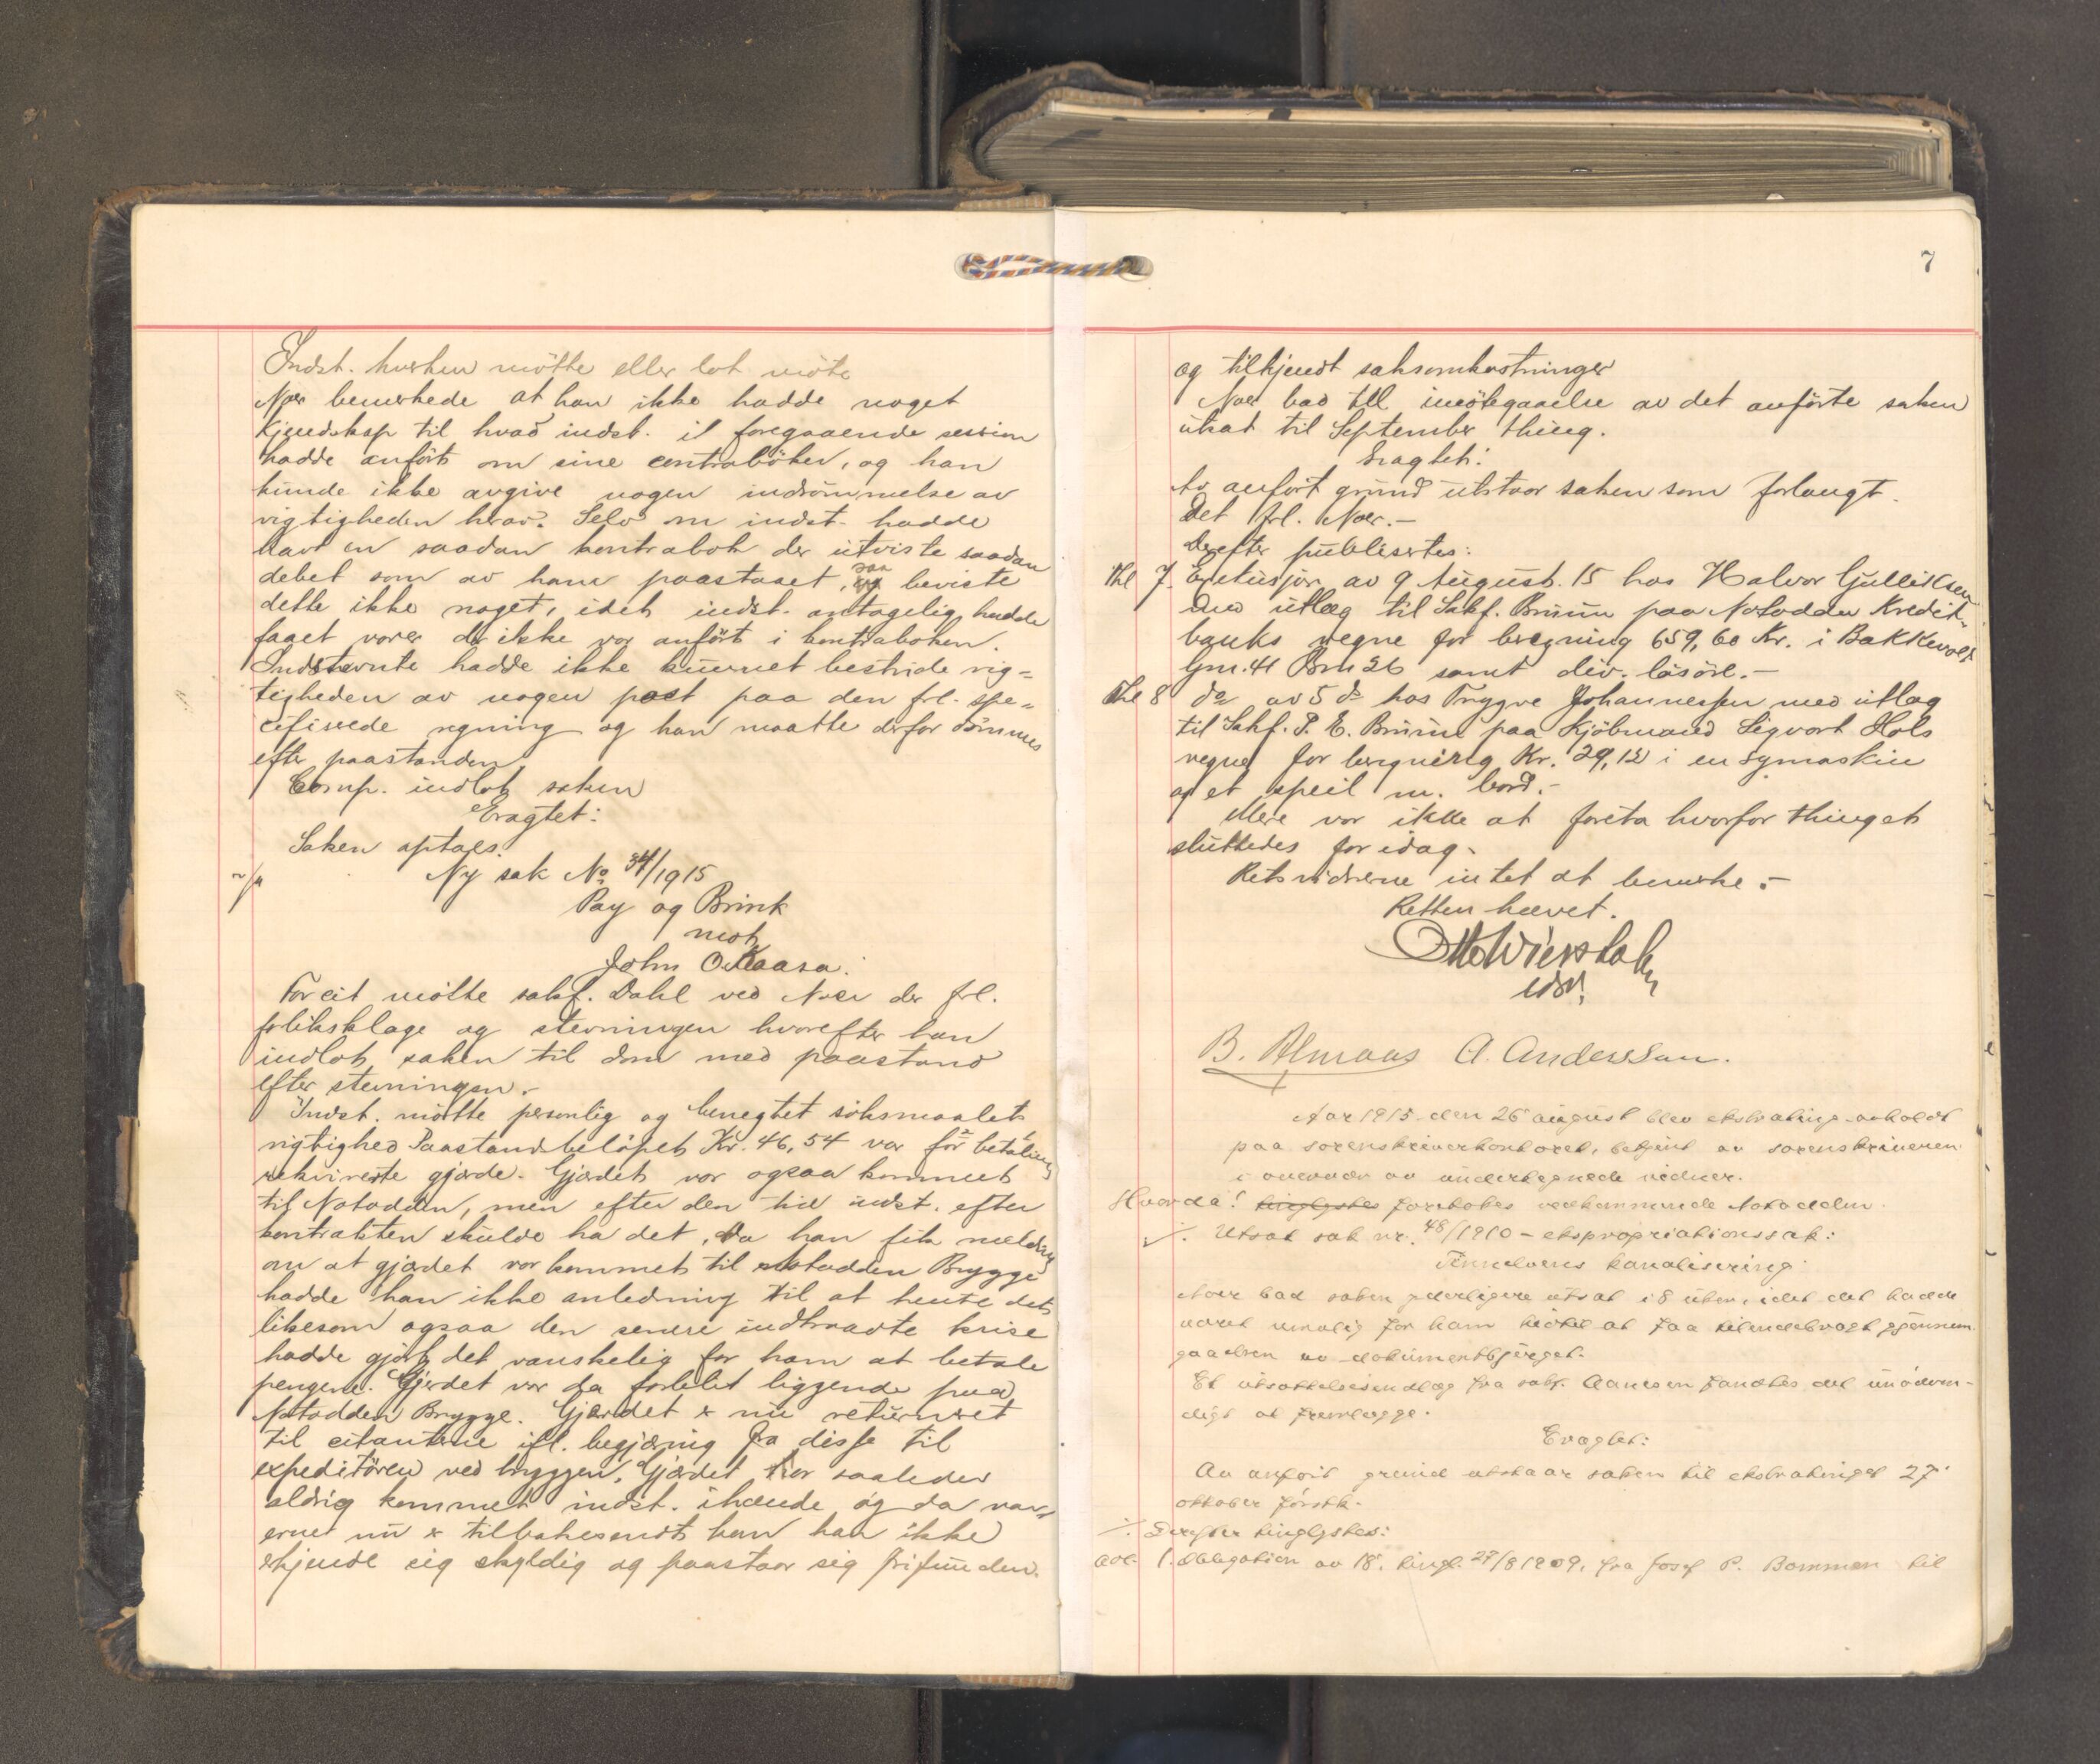 Indst. hverken mötte eller lot möte
Noer bemerkede at han ikke hadde noget
kjendskap til hvad indst. i foregaaende session
hadde anfört om sine contraböker, og han
kunde ikke avgive nogen indrömmelse av
rigtigheden herav. Selv om indst. hadde
havt en saadan kontrabok der utviste saadan
debet som av ham paastaaet, saa beviste
dette ikke noget, idet indst. antagelig hadde
faaet varer der ikke var anfört i kontraboken.
Indstevnte hadde ikke kunnet bestride rig=
tigheden av nogen post paa den frl. spe=
cifiserede regning og han maatte derfor dömmes
efter paastanden.
Comp. indlot saken
Eragtet:
Saken optaes.
Ny sak No 34/1915
Pay og Brink
mot
John O. Kaasa.
For cit mötte sakf. Dahl ved Noer der frl.
forliksklage og stevningen hvorefter han
indlot saken til dom med paastand
efter stevningen.-
Indst. mötte personlig og benegtet söksmaalets
rigtighed Paastandbelöpet Kr. 46,54 var for betaling
rekvirerte gjærde. Gjærdet var ogsaa kommet
til Notodden, men efter den tid indst. efter
kontrakten skulde ha det. Da han fik melding
om at gjærdet var kommet til Notodden Brygge
hadde han ikke anledning til at hente det
likesom ogsaa den senere indtraadte krise
hadde gjort det vanskelig for ham at betale
pengene. Gjerdet var da forblit liggende paa
Notodden Brygge. Gjærdet er nu returneret
til citanterne ifl. begjæring fra disse til
expeditören ved bryggen. Gjærdet var saaledes
aldrig kommet indst. ihænde og da var=
erne nu er tilbakesendt kan han ikke
erkjende sig skyldig og paastaar sig frifunden
7
og tilkjendt saksomkostninger
Noer bad til imötegaaelse av det anförte saken
utsat til September thing.
Eragtet:
Av anfört grund utstaar saken som forlangt.
Det frl. Noer.-
Derefter publisertes:
Thl 7. Exekusjon av 9 August. 15 hos Halvor Gulliksen
med utlæg til Sakf. Bruun paa Notodden Kredit-
banks vegne for beregning 659,60 Kr. i Bakkevold
Gm. 41 Brn 26 samt div. lösöre.-
Thl 8 do av 5 do hos Trygve Johannessen med utlæg
til Sakf. P. E. Bruun paa Kjöbmand Sigvart Hols
vegne for beregning Kr. 29,12 i en symaskin
og et speil m. bord.-
Mere var ikke at foreta hvorfor thinget
sluttedes for idag.
Retsvidnerne intet at bemerke.-
Retten hævet.
Otto Wierstak
B. Almaas A. Anderssen.
Aar 1915 den 26 august blev ekstrating avholdt
paa sorenskriverkontoret, betjent av sorenskriveren
i overvær av undertegnede vidner.
Hvorda! tinglystes foretokes vedkommende Notodden.
./. Utsat sak nr. 48/1910 - ekspropriationssak:
Tinnelvens kanalisering.
Noer bad saken yderligere utsat i 8 uker, idet det hadde
været umulig for ham hittil at faa tilendebragt gjennem
gaaelsen av dokumentbjerget.
Et utsættelsesindlæg fra sakf. Aanesen fandtes det unödven-
digt at fremlægge.
Eragtet:
Av anfört grund utstaar saken til ekstratinget 27.
oktober förstk.
./. Derefter tinglystes:
1. Obligation av 18. tingl. 27/8 1909, fra Josef P. Bommen til